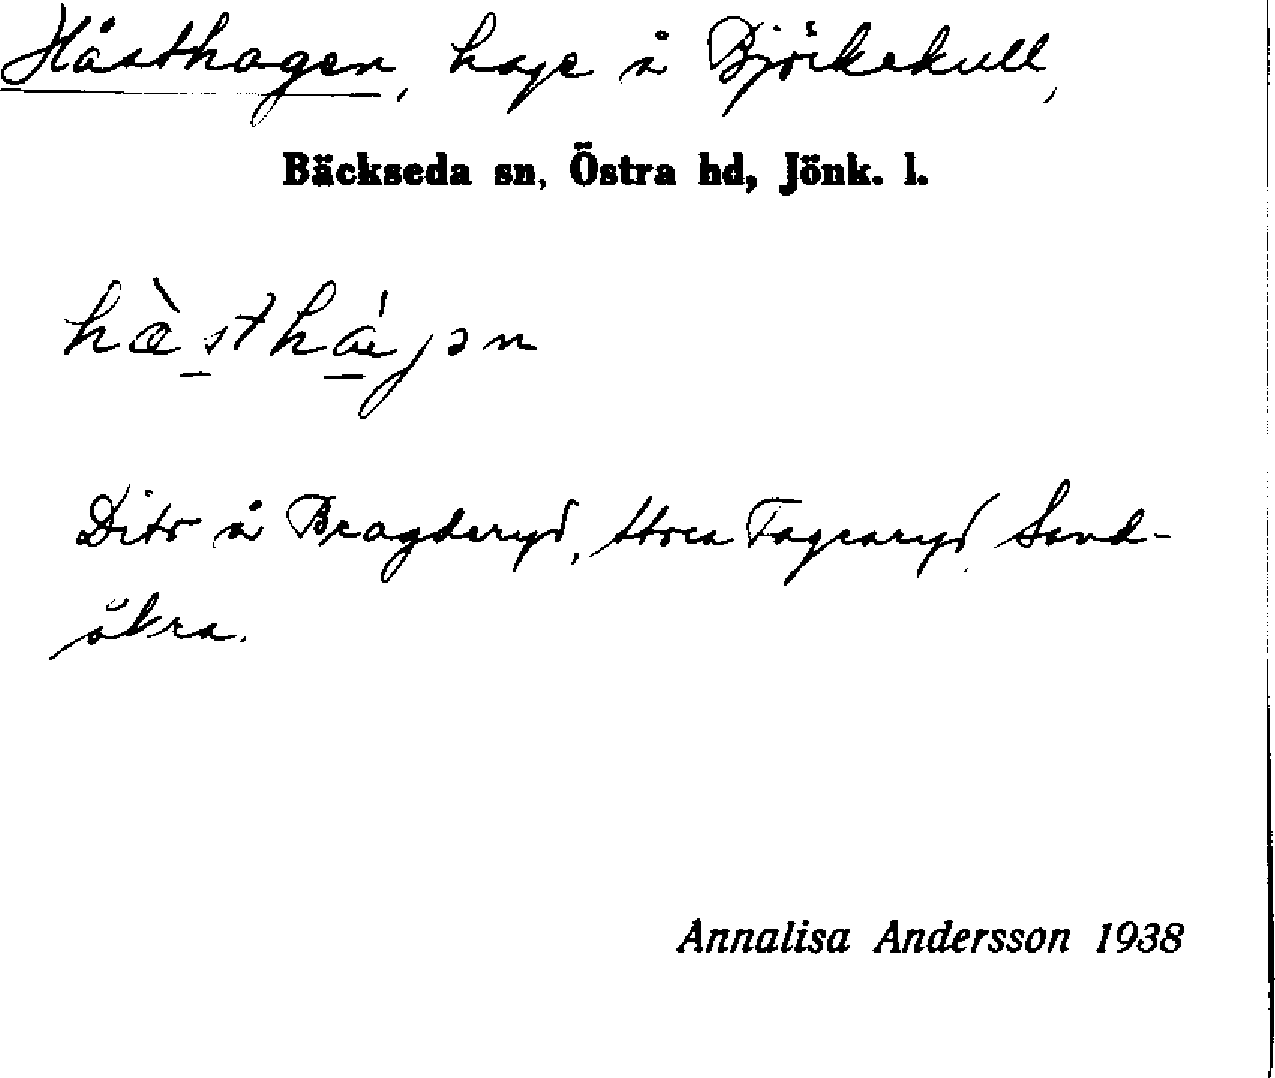 Hästhagen, hage å Björkekull,
Bäckseda sn, Östra hd, Jönk. l.
hæ̀sthàgən
Dito å Bragderyd, Stora Fagraryd, Sand-
åkra.
Annalisa Andersson 1938